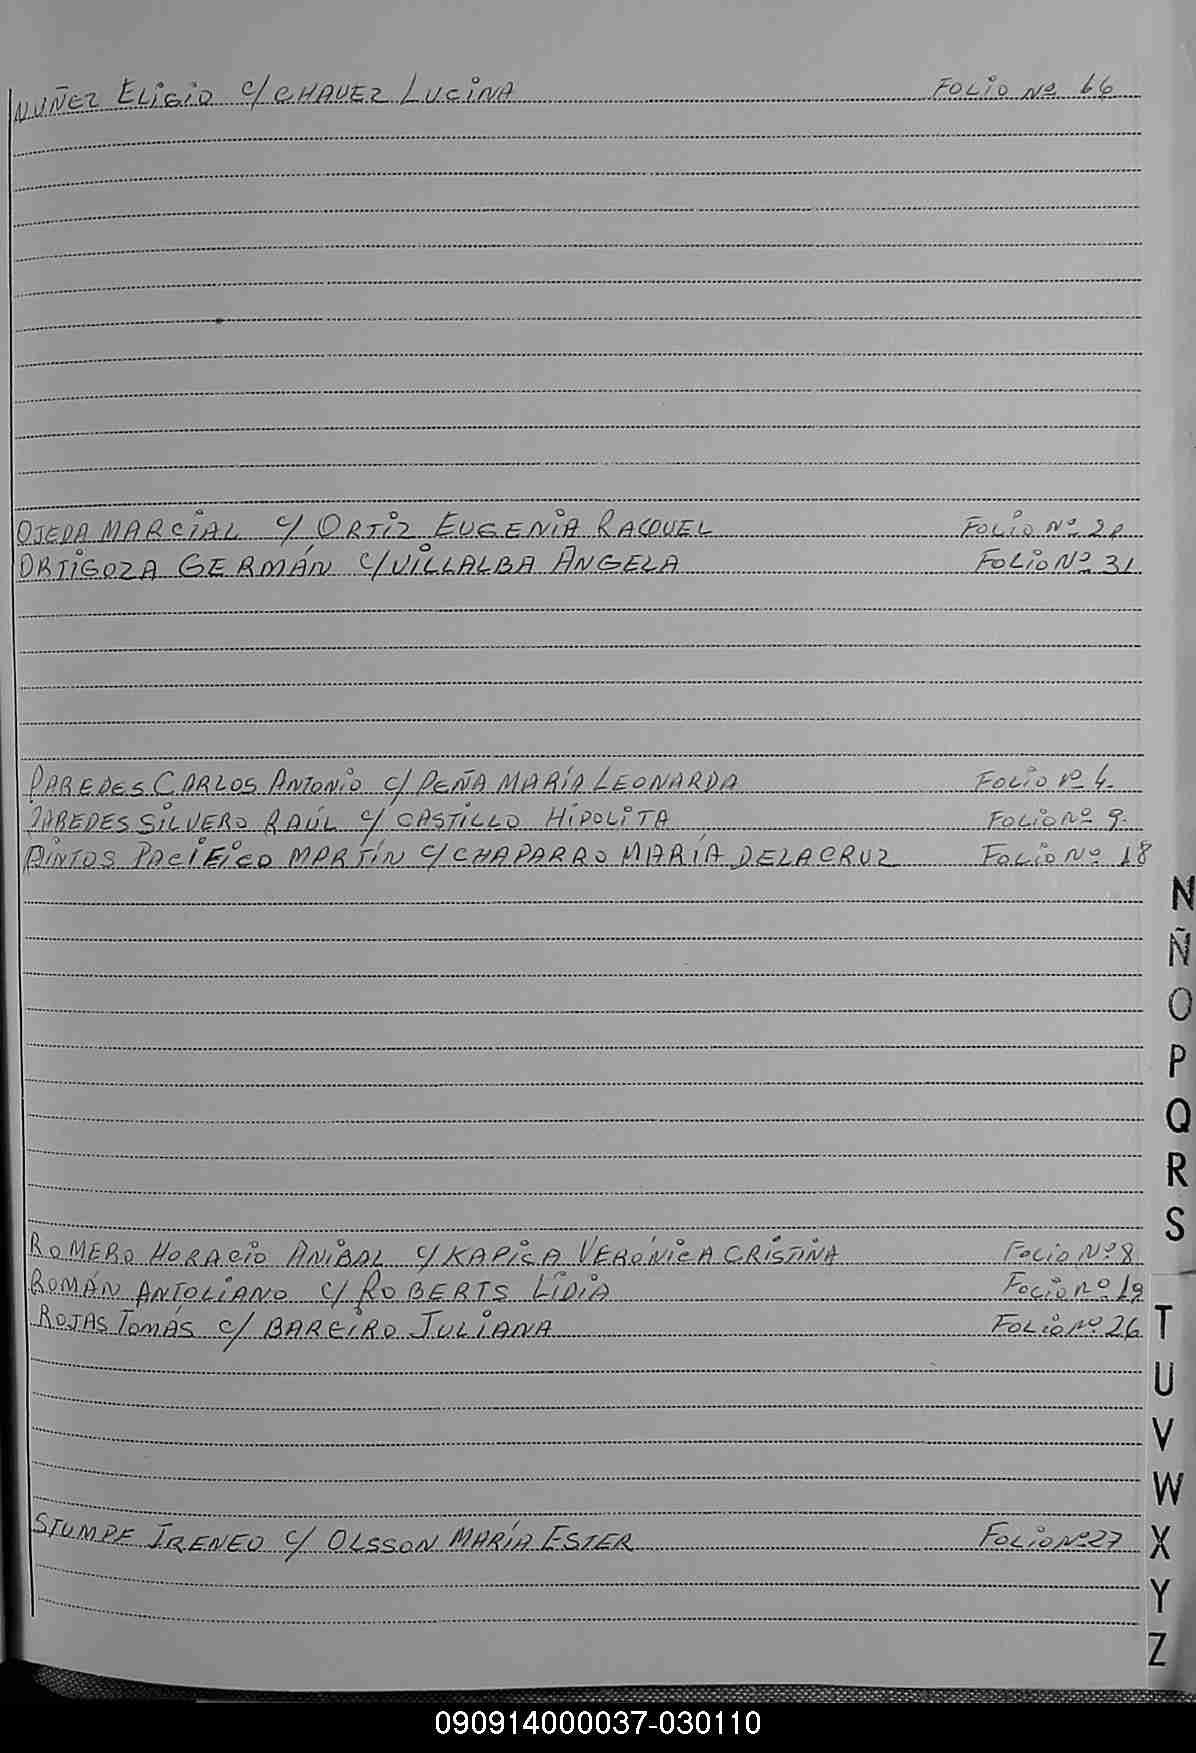 NUÑEZ ELIGIO C/ CHAVEZ LUCINA FOLIO Nº 16
OJEDA MARCIAL C/ ORTIZ EUGENIA RAQUEL FOLIO Nº
ORTIGOZA GERMÁN C/ VILLALBA ANGELA FOLIO Nº 31
PAREDES CARLOS ANTONIO C/ PEÑA MARÍA LEONARDA FOLIO Nº 4.
PAREDES SILVERO RAÚL C/ CASTILLO HIPOLITA FOLIO Nº 9.
PINTOS PACIFICO MARTÍN C/ CHAPARRO MARÍA DE LA CRUZ FOLIO Nº 18
ROMERO HORACIO ANIBAL C/ KAPICA VERÓNICA CRISTINA FOLIO Nº 8
ROMÁN ANTOLIANO C/ ROBERTS LIDIA FOLIO Nº 19
ROJAS TOMÁS C/ BAREIRO JULIANA FOLIO Nº 26
STUMPE IRENEO C/ OLSSON MARÍA ESTER FOLIO Nº 27
N
Ñ
O
P
Q
R
S
T
U
V
W
X
Y
Z
090914000037-030110